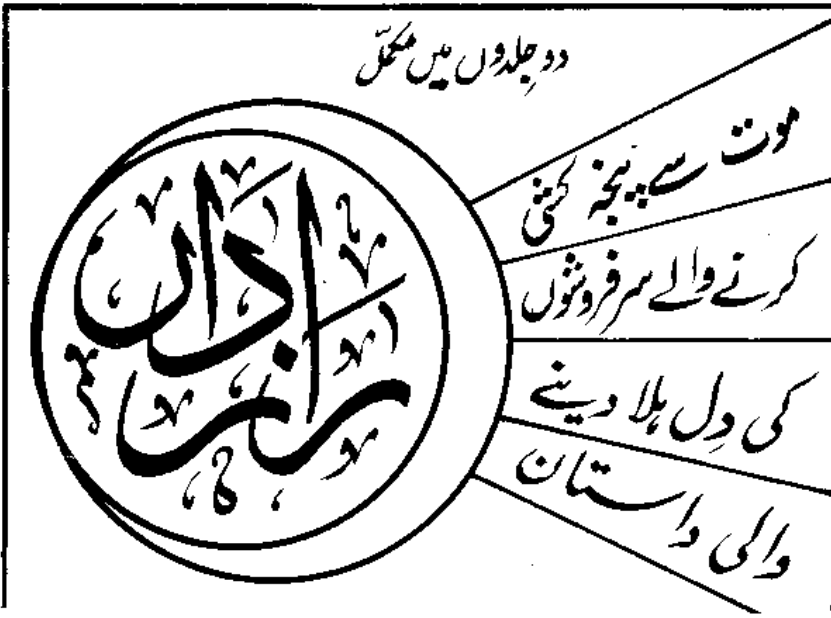 دو جِلدوں میں مکمّل
رازداں
موت سے پنجہ کشی
کرنے والے سرفروشوں
کی دِل ہلا دینے
والی داستان